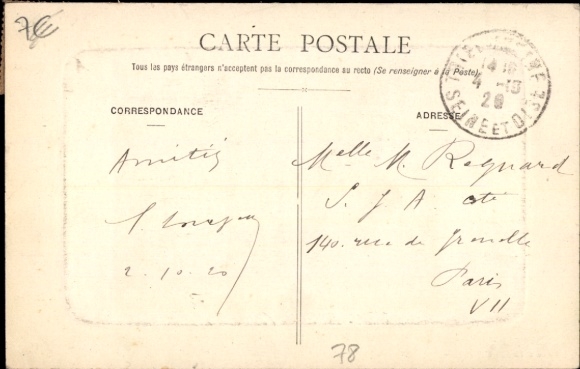 7€
CARTE POSTALE
Tous les pays étrangers n'acceptent pas la correspondance au recto (Se renseigner à la Poste)
CORRESPONDANCE
ADRESSE
14
4 -10
20
SEINE ET OISE
Amitiés
2.10.20
Melle M. Regnard
S. J. A.
140. rue de Grenelle
Paris
VII
78